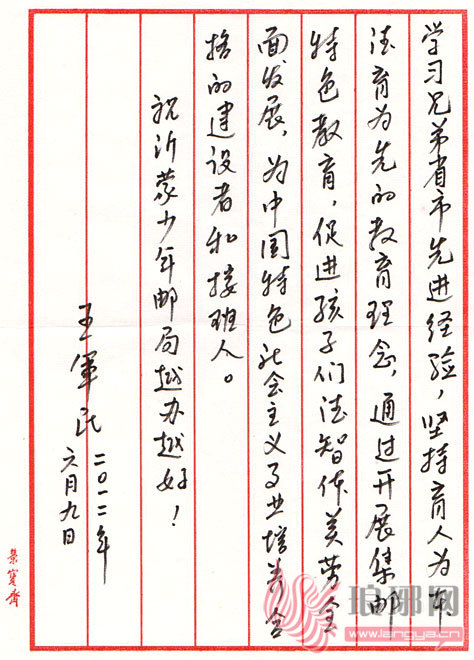 学习兄弟省市先进经验，坚持育人为本
德育为先的教育理念，通过开展集邮
特色教育，促进孩子们德智体美劳全
面发展，为中国特色社会主义事业培养合
格的建设者和接班人。
祝沂蒙少年邮局越办越好！
王军民
二〇一二年
六月九日
荣宝斋
琅琊网
www.langya.cn